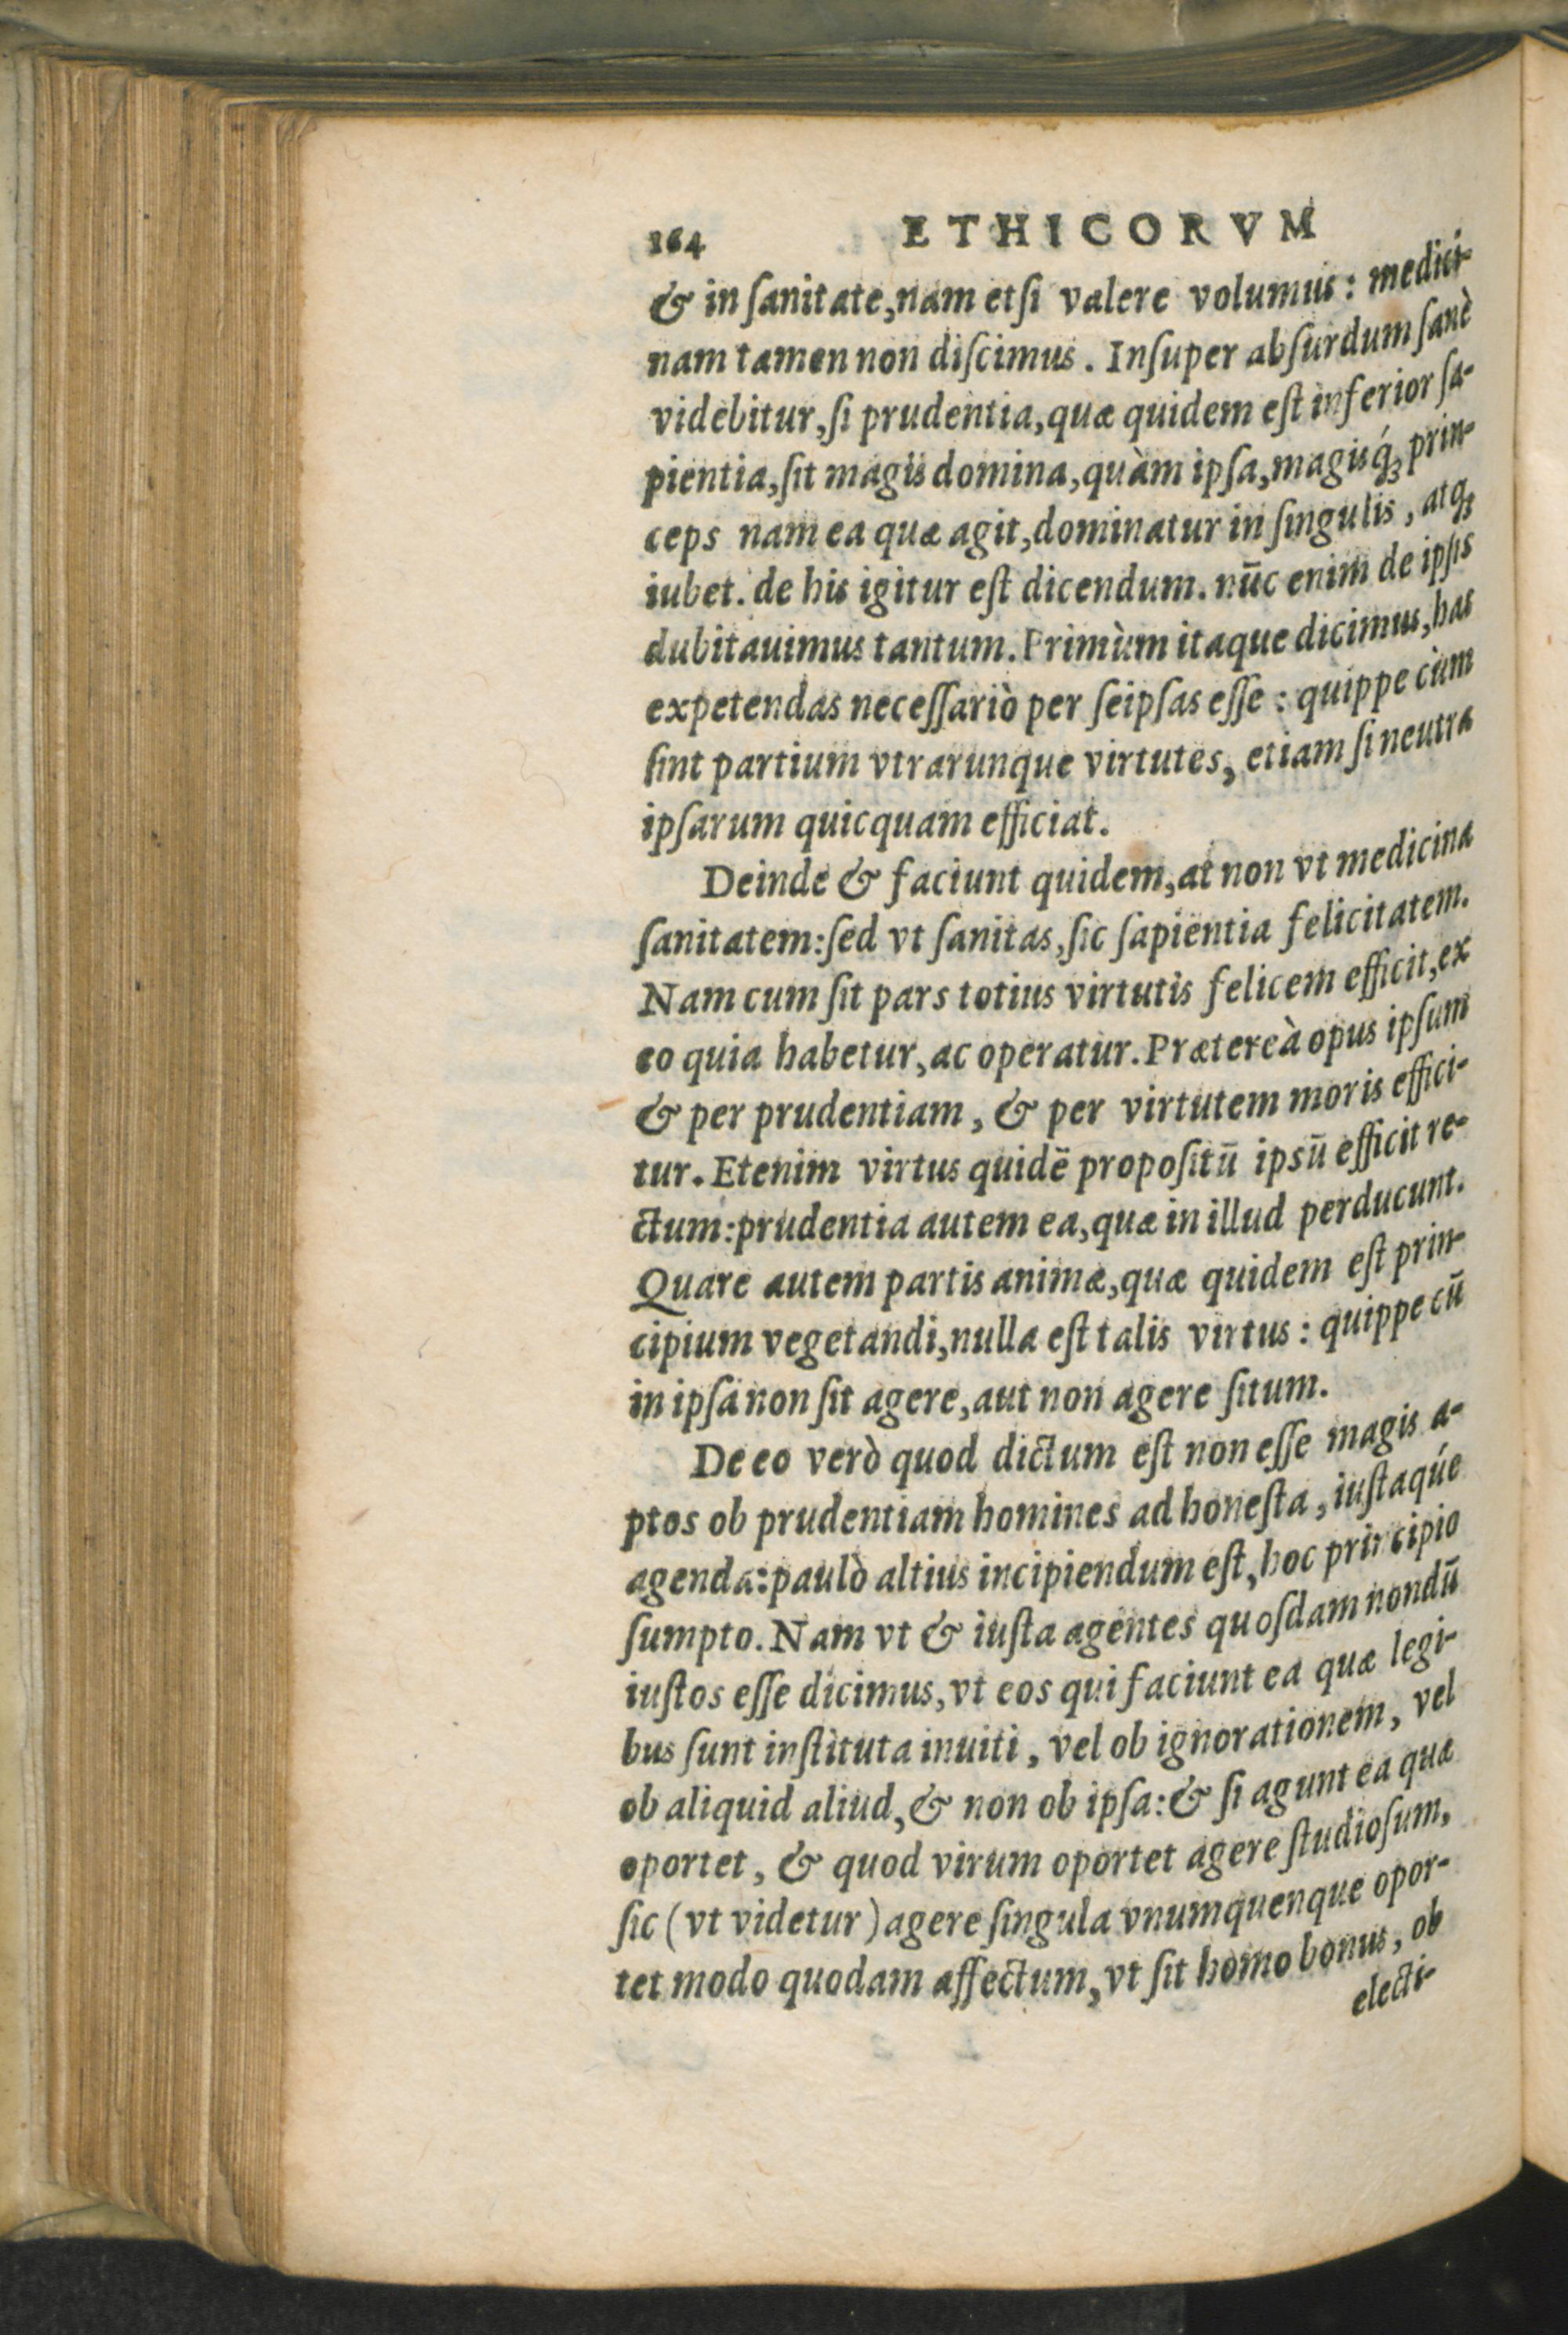 164 ETHICORVM
& in ſanitate,nam etſi valere volumus: medici-
nam tamen non diſcimus. Inſuper abſurdum ſanè
videbitur,ſi prudentia,quæ quidem eſt inferior ſa-
pientia,ſit magis domina,quàm ipſa,magisq́ꝫ prin-
ceps nam ea quæ agit,dominatur in ſingulis, atqꝫ
iubet. de his igitur eſt dicendum. nūc enim de ipſis
dubitauimus tantum. Primùm itaque dicimus,has
expetendas neceſſariò per ſeipſas eſſe: quippe cùm
ſint partium vtrarunque virtutes, etiam ſi neutra
ipſarum quicquam efficiat.
Deinde & faciunt quidem,at non vt medicina
ſanitatem:ſed vt ſanitas,ſic ſapientia felicitatem.
Nam cum ſit pars totius virtutis felicem efficit,ex
eo quia habetur,ac operatur. Prætereà opus ipſum
& per prudentiam, & per virtutem moris effici-
tur. Etenim virtus quidē propoſitū ipsū efficit re-
ctum:prudentia autem ea,quæ in illud perducunt.
Quare autem partis animæ,quæ quidem eſt prin-
cipium vegetandi,nulla eſt talis virtus: quippe cū
in ipſa non ſit agere,aut non agere ſitum.
De eo verò quod dictum eſt non eſſe magis a-
ptos ob prudentiam homines ad honeſta, iuſtaqúe
agenda:paulò altius incipiendum eſt,hoc principio
ſumpto. Nam vt & iuſta agentes quoſdam nondū
iuſtos eſſe dicimus,vt eos qui faciunt ea quæ legi-
bus ſunt inſtituta inuiti, vel ob ignorationem, vel
ob aliquid aliud,& non ob ipſa:& ſi agunt ea quæ
oportet, & quod virum oportet agere ſtudioſum,
ſic (vt videtur) agere ſingula vnumquenque opor-
tet modo quodam affectum,vt ſit homo bonus, ob
electi-